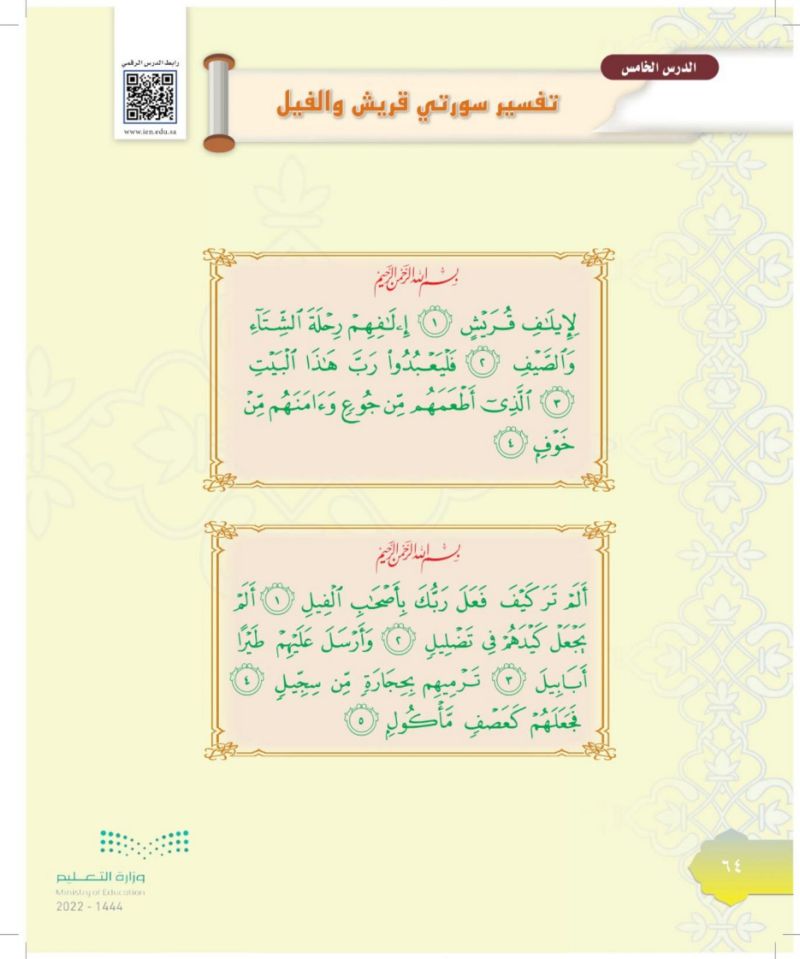 رابط الدرس الرقمي
www.ien.edu.sa
الدرس الخامس
تفسير سورتي قريش والفيل
بِسْمِ اللهِ الرَّحْمَٰنِ الرَّحِيمِ
لِإِيلَٰفِ قُرَيْشٍ ١ إِۦلَٰفِهِمْ رِحْلَةَ ٱلشِّتَآءِ
وَٱلصَّيْفِ ٢ فَلْيَعْبُدُوا۟ رَبَّ هَٰذَا ٱلْبَيْتِ
٣ ٱلَّذِىٓ أَطْعَمَهُم مِّن جُوعٍ وَءَامَنَهُم مِّنْ
خَوْفٍۭ ٤
بِسْمِ اللهِ الرَّحْمَٰنِ الرَّحِيمِ
أَلَمْ تَرَ كَيْفَ فَعَلَ رَبُّكَ بِأَصْحَٰبِ ٱلْفِيلِ ١ أَلَمْ
يَجْعَلْ كَيْدَهُمْ فِى تَضْلِيلٍ ٢ وَأَرْسَلَ عَلَيْهِمْ طَيْرًا
أَبَابِيلَ ٣ تَرْمِيهِم بِحِجَارَةٍ مِّن سِجِّيلٍ ٤
فَجَعَلَهُمْ كَعَصْفٍ مَّأْكُولٍۭ ٥
وزارة التعليم
Ministry of Education
2022 - 1444
٦٤